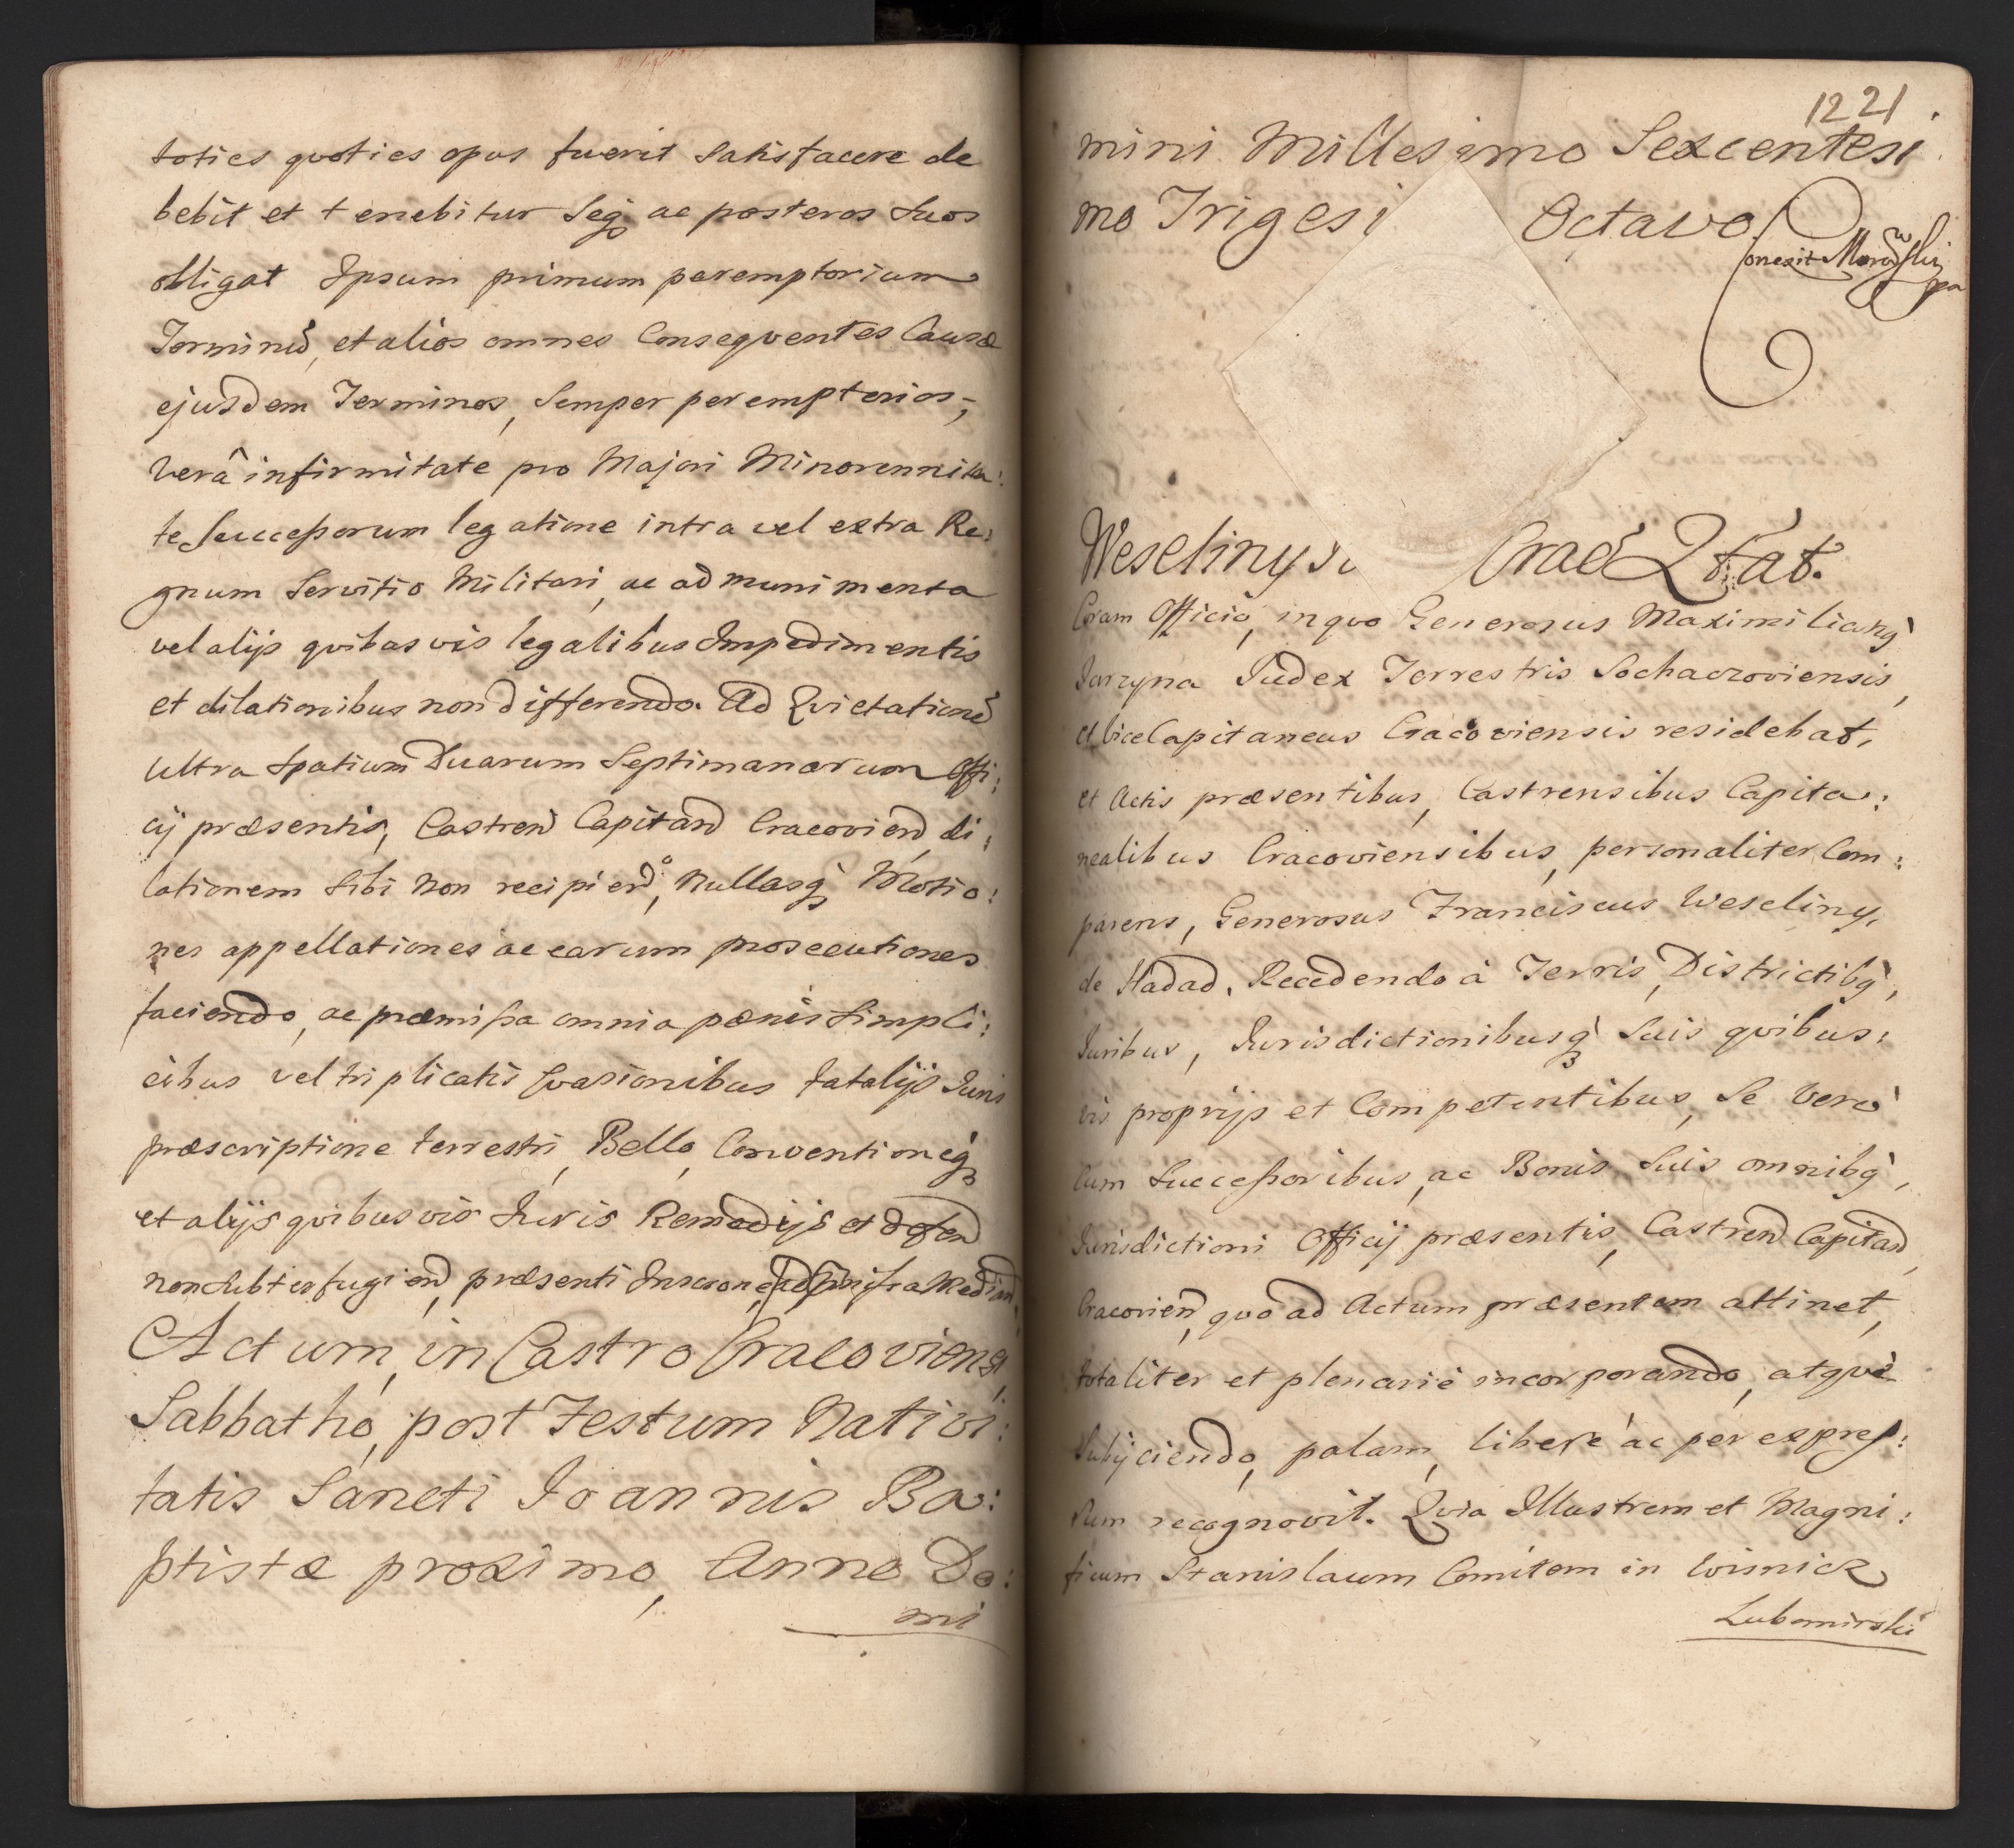 toties quoties opus fuerit satisfacere de
bebit et tenebitur Seq3 ac posteros suos
obligat Ipsum primum peremptorium
Terminũ, et alios omnes Consequentes Causæ
ejusdem Terminos, Semper peremptorios,
Verâ infirmitate pro Majori Minorennita:
te Successorum legatione intra vel extra Re:
gnum Servitio Militari, ac ad munimenta
vel alijs quibusvis legalibus Impedimentis
et dilationibus non differendo. Ad Quietationẽ
Ultra Spatium Duarum Septimanarum Offi:
cij præsentis, Castren Capitan Cracovien di:
lationem Sibi non recipiendo, Nullasq3 Motio:
nes appellationes ac earum prosecutiones
faciendo, ac præmissa omnia pænis Simpli:
cibus vel triplicatis fatalijs Juris
præscriptione terrestri, Bello, Conventioneq3
et alijs quibusvis Juris Remedijs et defen
non Subterfugien, præsenti
Actum in Castro Cracoviensi,
Sabbatho, post Festum Nativi:
tatis Sancti Joannis Ba:
ptistæ proximo, Anno Do:
mi
1221.
mini Millesimo Sexcentesi
mo Trigesi Octavo.
Weseliny Crac Qtat.
Coram Officio, in quo Generosus Maximilianq
Jarzyna Judex Terrestris Sochaczoviensis,
et ViceCapitaneus Cracoviensis residebat,
et Actis præsentibus, Castrensibus Capita:
nealibus Cracoviensibus, personaliter Com:
parens, Generosus Franciscus Weseliny,
de Hadad, Recedendo à Terris, Districtibq,
Juribus, Jurisdictionibusq3 Suis quibus:
vis proprijs et Competentibus, Se vero
Cum Successoribus, ac Bonis Suis omnibq,
Jurisdictioni Officij præsentis, Castren Capitan,
Cracovien, quo ad Actum præsentem attinet,
totaliter et plenarie incorporando, atque
Subijciendo, palam, libere ac per expres:
sum recognovit. Quia Illustrem et Magni:
ficum Stanislaum Comitem in Wisnicz
Lubomirski